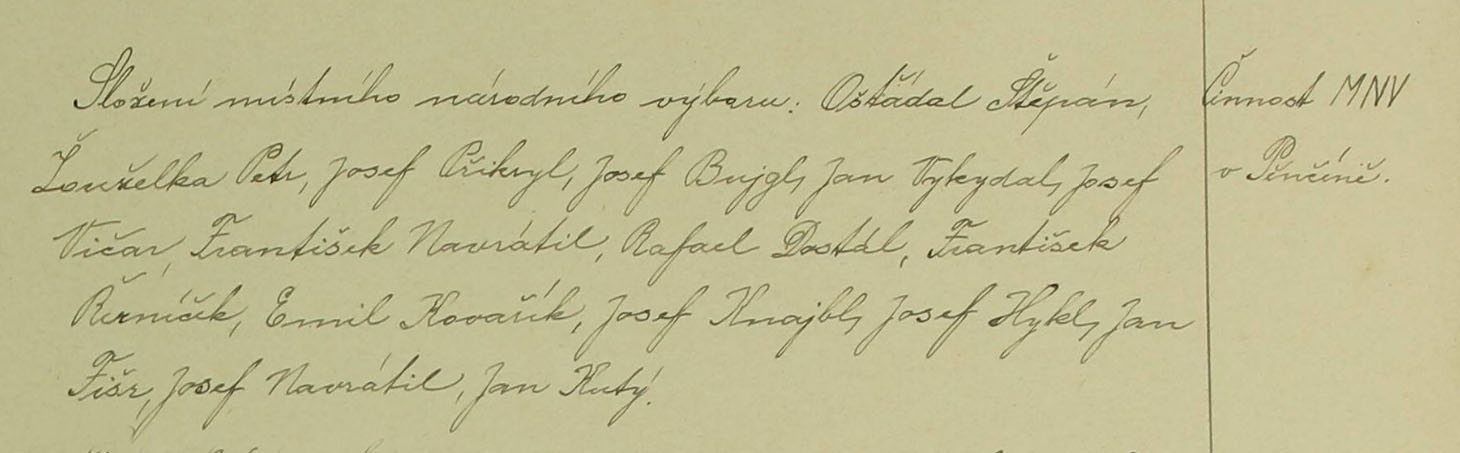 Složení místního národního výboru: Ošťádal Štěpán,
Žouželka Petr, Josef Přikryl, Josef Bujgl, Jan Vykydal, Josef
Vičar, František Navrátil, Rafael Dostál, František
Řezníček, Emil Kovařík, Josef Knajbl, Josef Hykl, Jan
Fišr, Josef Navrátil, Jan Kutý.
Činnost MNV
v Pěnčíně.